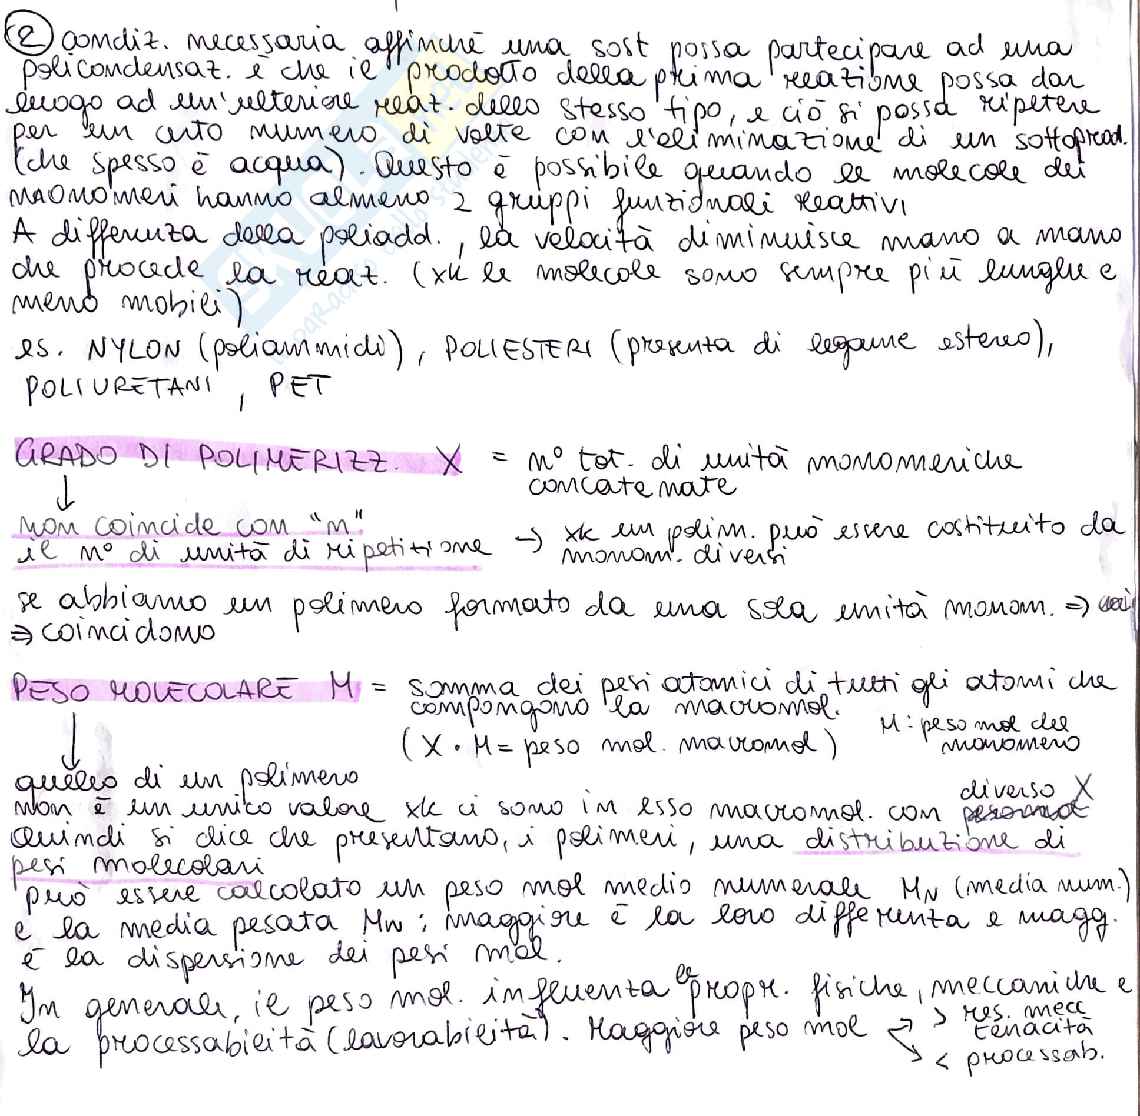 ② Condiz. necessaria affinché una sost possa partecipare ad una
policondensaz. è che il prodotto della prima reazione possa dar
luogo ad un'ulteriore reaz. dello stesso tipo, e ciò si possa ripetere
per un certo numero di volte con l'eliminazione di un sottoprod.
(che spesso è acqua). Questo è possibile quando le molecole dei
monomeri hanno almeno 2 gruppi funzionali reattivi
A differenza della poliadd., la velocità diminuisce mano a mano
che procede la reaz. (xk le molecole sono sempre più lunghe e
meno mobili)
es. NYLON (poliammidi), POLIESTERI (presenta di legame estereo),
POLIURETANI, PET
GRADO DI POLIMERIZZ. X = n° tot. di unità monomeriche
concatenate
↓
non coincide con "n"
il n° di unità di ripetizione → xk un polim. può essere costituito da
monom. diversi
se abbiamo un polimero formato da una sola unità monom. ⇒
⇒ coincidono
PESO MOLECOLARE M = somma dei pesi atomici di tutti gli atomi che
compongono la macromol.
(X · M = peso mol. macromol) M: peso mol del
monomero
↓
quello di un polimero
non è un unico valore xk ci sono in esso macromol. con diverso X
Quindi si dice che presentano, i polimeri, una distribuzione di
pesi molecolari
può essere calcolato un peso mol medio numerale MN (media num.)
e la media pesata Mw: maggiore è la loro differenza e magg.
è la dispersione dei pesi mol.
In generale, il peso mol. influenza le propr. fisiche, meccaniche e
la processabilità (lavorabilità). Maggiore peso mol → > res. mecc
tenacità
→ < processab.